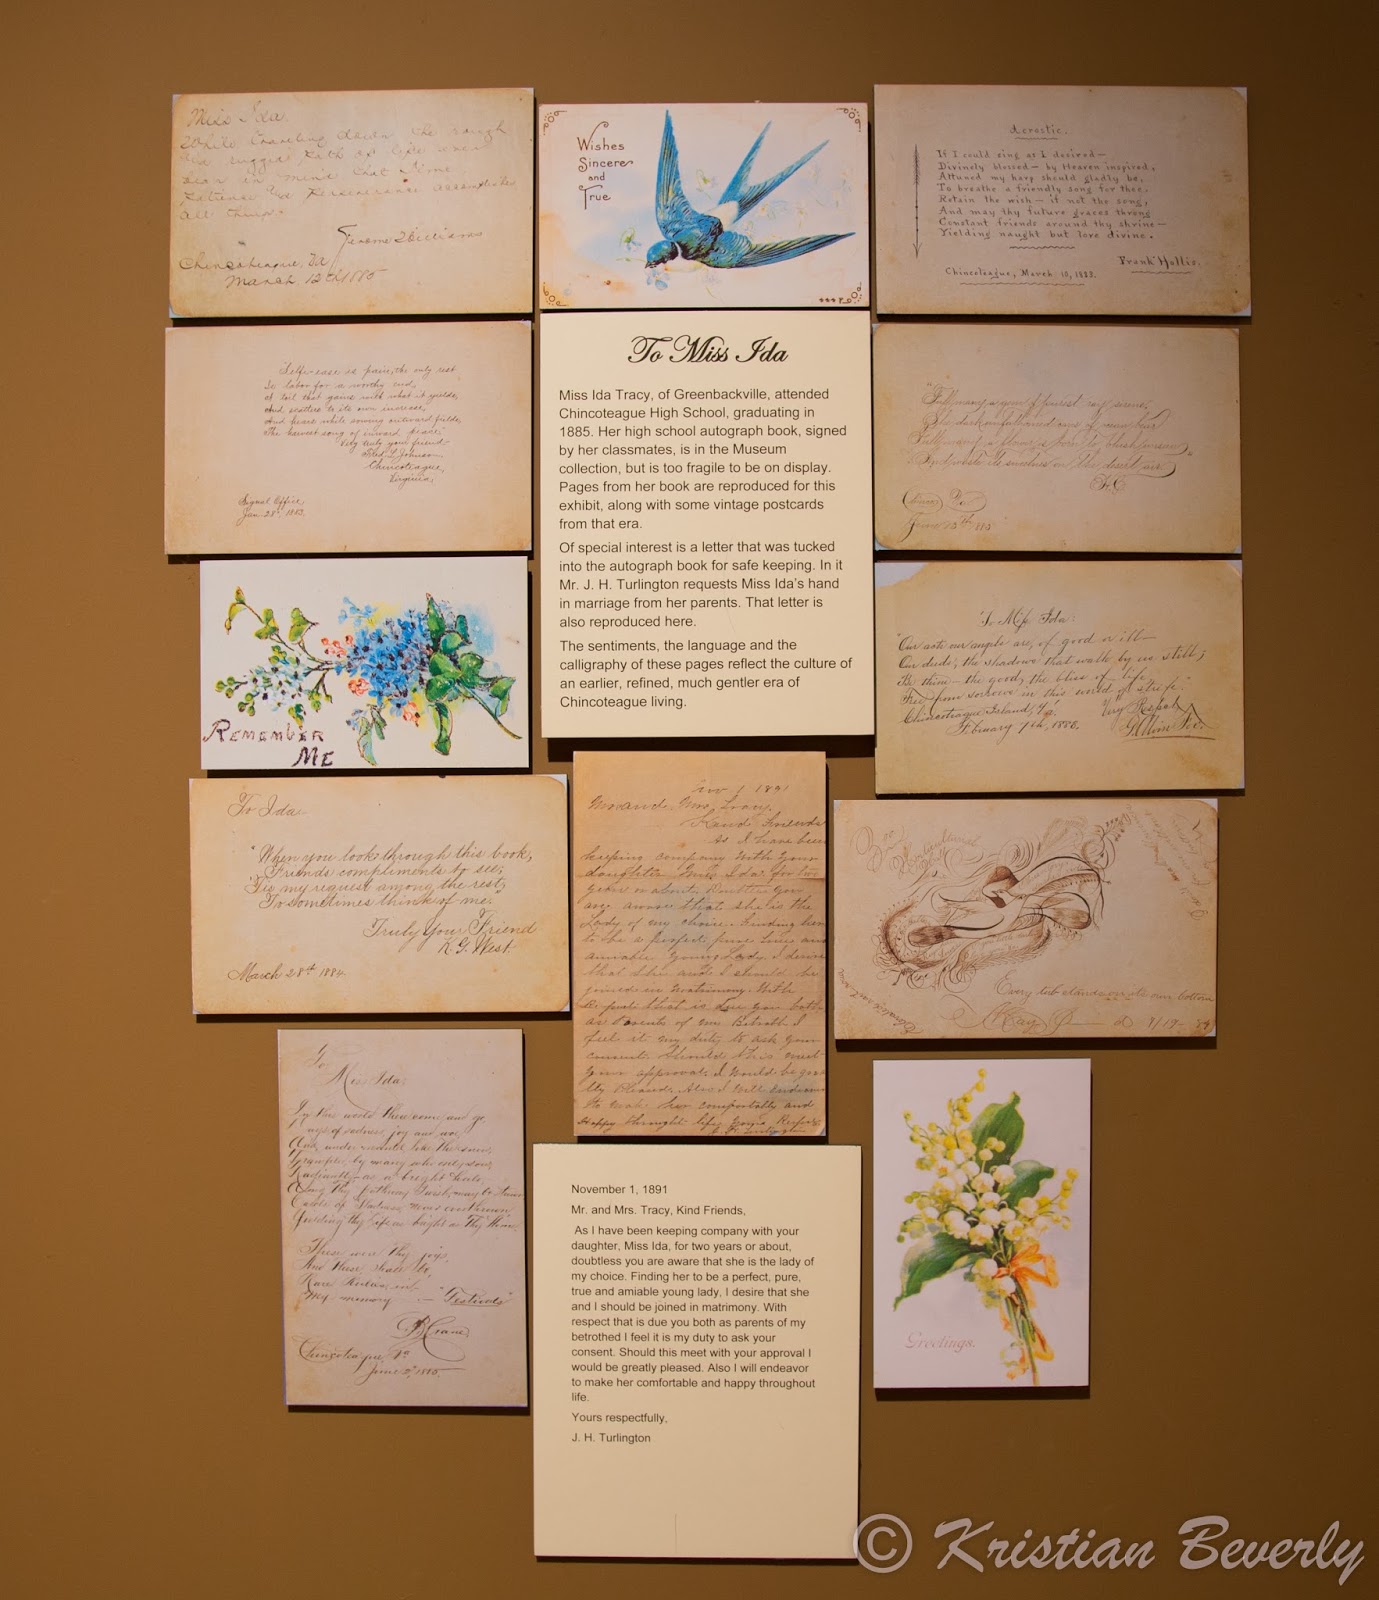 Miss Ida.
While traveling down the rough
and rugged path of life ever
bear in mind that time
Patience and Perseverance accomplishes
all things.
Jerome Williams
Chincoteague, Va
March 12th 1885
Wishes
Sincere
and
True
Acrostic.
If I could sing as I desired—
Divinely blessed—by Heaven inspired,
Attuned my harp should gladly be,
To breathe a friendly song for thee.
Retain the wish—if not the song,
And may thy future graces throng
Constant friends around thy shrine—
Yielding naught but love divine.
Frank Hollis.
Chincoteague, March 10, 1883.
"Selfe-ease is paine, the only rest
Is labor for a worthy end,
A toil that gains with what it yields,
And scatters to its own increase,
And hears while sowing outward fields,
The harvest song of inward peace."
Very truly your friend
Fred L. Johnson
Chincoteague,
Virginia.
Signal Office,
Jan 28", 1883.
To Miss Ida
Miss Ida Tracy, of Greenbackville, attended
Chincoteague High School, graduating in
1885. Her high school autograph book, signed
by her classmates, is in the Museum
collection, but is too fragile to be on display.
Pages from her book are reproduced for this
exhibit, along with some vintage postcards
from that era.
Of special interest is a letter that was tucked
into the autograph book for safe keeping. In it
Mr. J. H. Turlington requests Miss Ida's hand
in marriage from her parents. That letter is
also reproduced here.
The sentiments, the language and the
calligraphy of these pages reflect the culture of
an earlier, refined, much gentler era of
Chincoteague living.
"Full many a gem of purest ray serene,
The dark unfathomed caves of ocean bear
Full many a flower is born to blush unseen
And waste its sweetness on the desert air"
June 13th
Remember
Me
To Miss Ida:
"Our acts our angels are, of good or ill—
Our deeds, the shadows that walk by us still;
Be thine—the good, the bliss of life,
Free from sorrow in this world of strife."
Chincoteague Island, Va.
February 7th, 1885.
Very Respect.
To Ida—
"When you look through this book,
Friends compliments to see,
Tis my request among the rest,
To sometimes think of me."
Truly Your Friend
K. G. West.
March 28th 1884.
Nov 1 1891
Mr. and Mrs. Tracy,
Kind Friends
As I have been
keeping company with your
daughter Miss Ida for two
years or about. Doubtless you
are aware that she is the
Lady of my choice. Finding her
to be a perfect, pure, true and
amiable young Lady. I desire
that she and I should be
joined in matrimony. With
Respect that is due you both
as Parents of my Betroth I
feel it my duty to ask your
consent. Should this meet
your approval I would be grea
tly Pleased. Also I will endeavor
to make her comfortably and
Happy throught life. Yours Respect
J. H. Turlington
Every tub stands on its own bottom
To
Miss Ida,
In this world there come and go,
days of sadness, joy and woe,
These were thy joys,
And these shall be,
My memory — "Festivals"
Crane
Chincoteague Va
June 2", 1885
November 1, 1891
Mr. and Mrs. Tracy, Kind Friends,
As I have been keeping company with your
daughter, Miss Ida, for two years or about,
doubtless you are aware that she is the lady of
my choice. Finding her to be a perfect, pure,
true and amiable young lady, I desire that she
and I should be joined in matrimony. With
respect that is due you both as parents of my
betrothed I feel it is my duty to ask your
consent. Should this meet with your approval I
would be greatly pleased. Also I will endeavor
to make her comfortable and happy throughout
life.
Yours respectfully,
J. H. Turlington
Greetings.
© Kristian Beverly